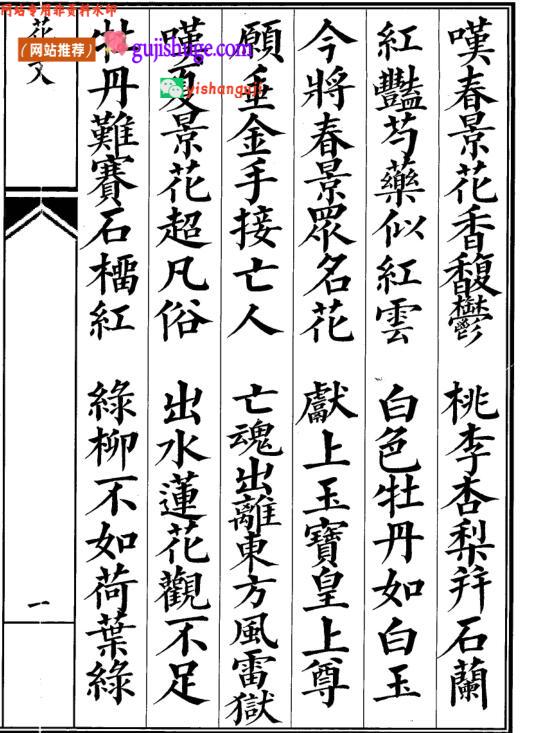 嘆春景花香馥鬱　桃李杏梨并石蘭
紅豔芍藥似紅雲　白色牡丹如白玉
今將春景眾名花　獻上玉寶皇上尊
願垂金手接亡人　亡魂出離東方風雷獄
嘆夏景花超凡俗　出水蓮花觀不足
牡丹難賽石榴紅　綠柳不如荷葉綠
花文
一
网站专用非资料水印
（网站推荐）
gujishuge.com
yishanguji